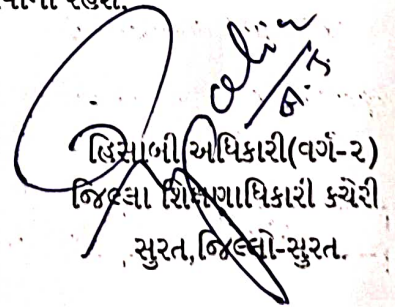 રહેશે.
હિસાબી અધિકારી(વર્ગ-૨)
જિલ્લા શિક્ષણાધિકારી કચેરી
સુરત,જિલ્લો-સુરત.